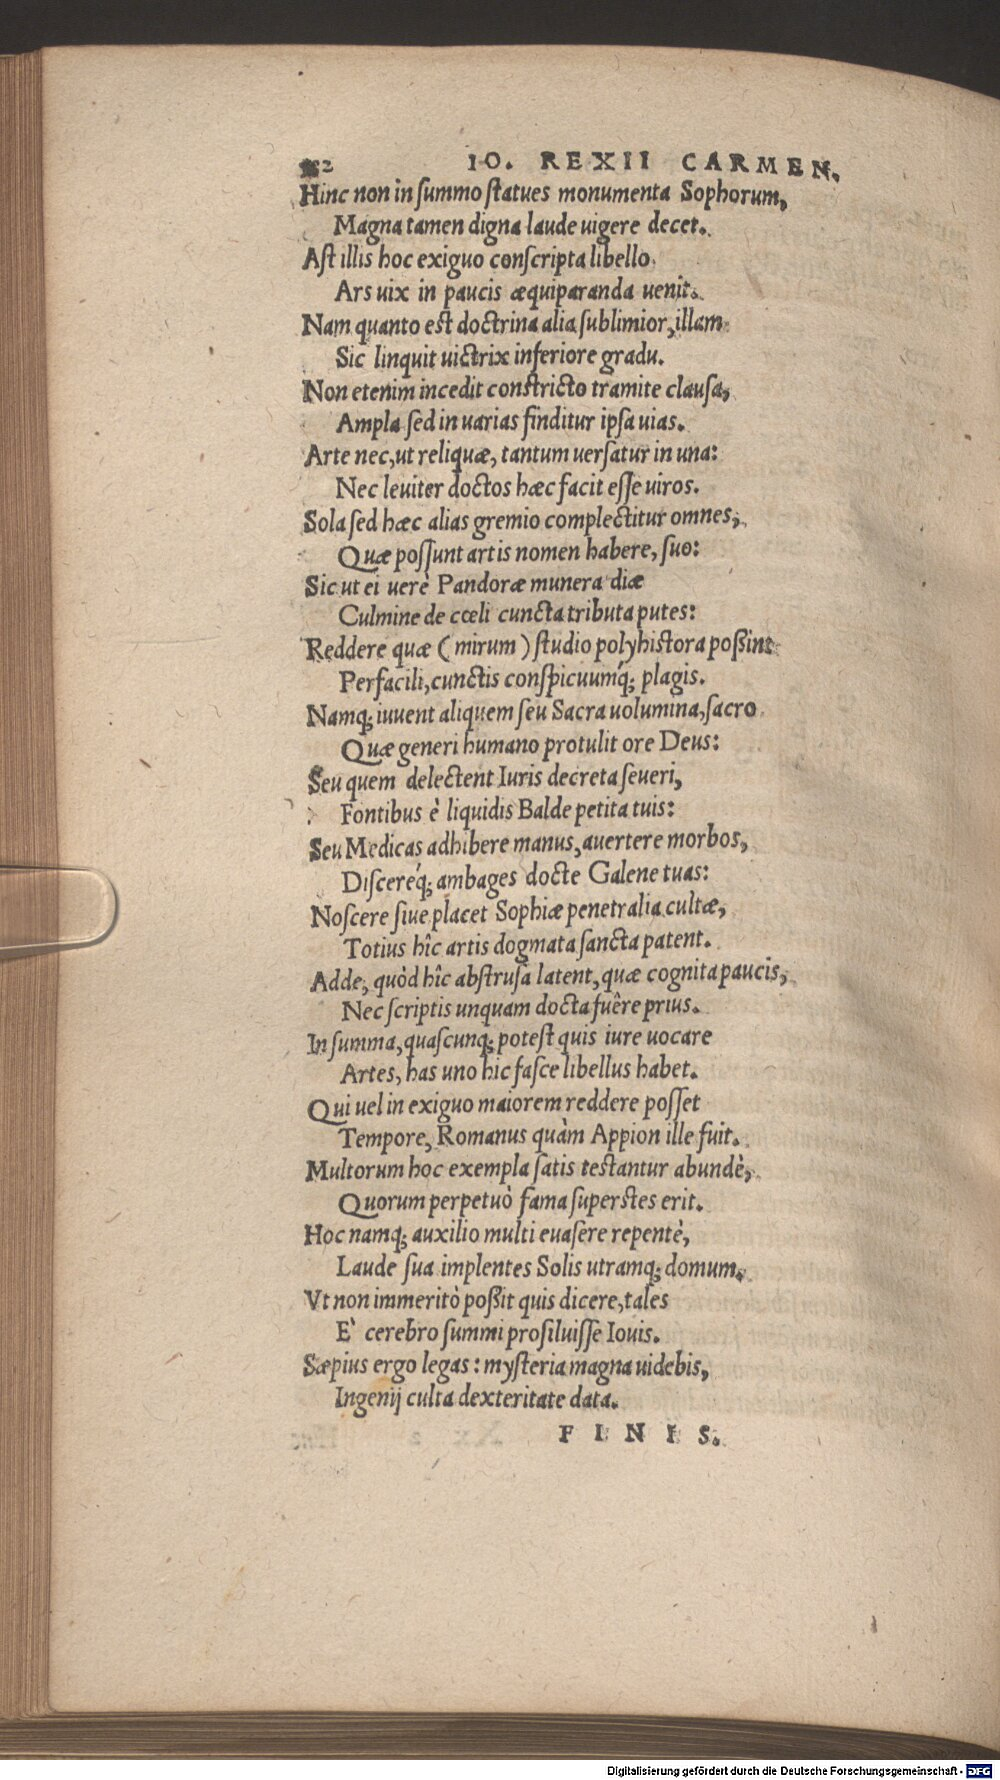 IO. REXII CARMEN.
Hinc non in ſummo ſtatues monumenta Sophorum,
Magna tamen digna laude uigere decet.
Aſt illis hoc exiguo conſcripta libello
Ars uix in paucis æquiparanda uenit.
Nam quanto est doctrina alia ſublimior, illam
Sic linquit uictrix inferiore gradu.
Non etenim incedit constricto tramite clauſa,
Ampla ſed in uarias finditur ipſa uias.
Arte nec, ut reliquæ, tantum uerſatur in una:
Nec leuiter doctos hæc facit eſſe uiros.
Sola ſed hæc alias gremio complectitur omnes,
Quæ poſſunt artis nomen habere, ſuo:
Sic ut ei uerè Pandoræ munera diæ
Culmine de cœli cuncta tributa putes:
Reddere quæ (mirum) ſtudio polyhistora poßint
Perfacili, cunctis conſpicuumq́; plagis.
Namq; iuuent aliquem ſeu Sacra uolumina, ſacro
Quæ generi humano protulit ore Deus:
Seu quem delectent Iuris decreta ſeueri,
Fontibus è liquidis Balde petita tuis:
Seu Medicas adhibere manus, auertere morbos,
Diſcereq́; ambages docte Galene tuas:
Noſcere ſiue placet Sophiæ penetralia cultæ,
Totius hîc artis dogmata ſancta patent.
Adde, quòd hîc abſtruſa latent, quæ cognita paucis,
Nec ſcriptis unquam docta fuêre prius.
In ſumma, quaſcunq; potest quis iure uocare
Artes, has uno hic faſce libellus habet.
Qui uel in exiguo maiorem reddere poſſet
Tempore, Romanus quàm Appion ille fuit.
Multorum hoc exempla ſatis testantur abundè,
Quorum perpetuò fama ſuperstes erit.
Hoc namq; auxilio multi euaſere repentè,
Laude ſua implentes Solis utramq; domum.
Vt non immeritò poßit quis dicere, tales
E' cerebro ſummi proſiluiſſe Iouis.
Sæpius ergo legas: myſteria magna uidebis,
Ingenij culta dexteritate data.
F I N I S.
Digitalisierung gefördert durch die Deutsche Forschungsgemeinschaft - DFG